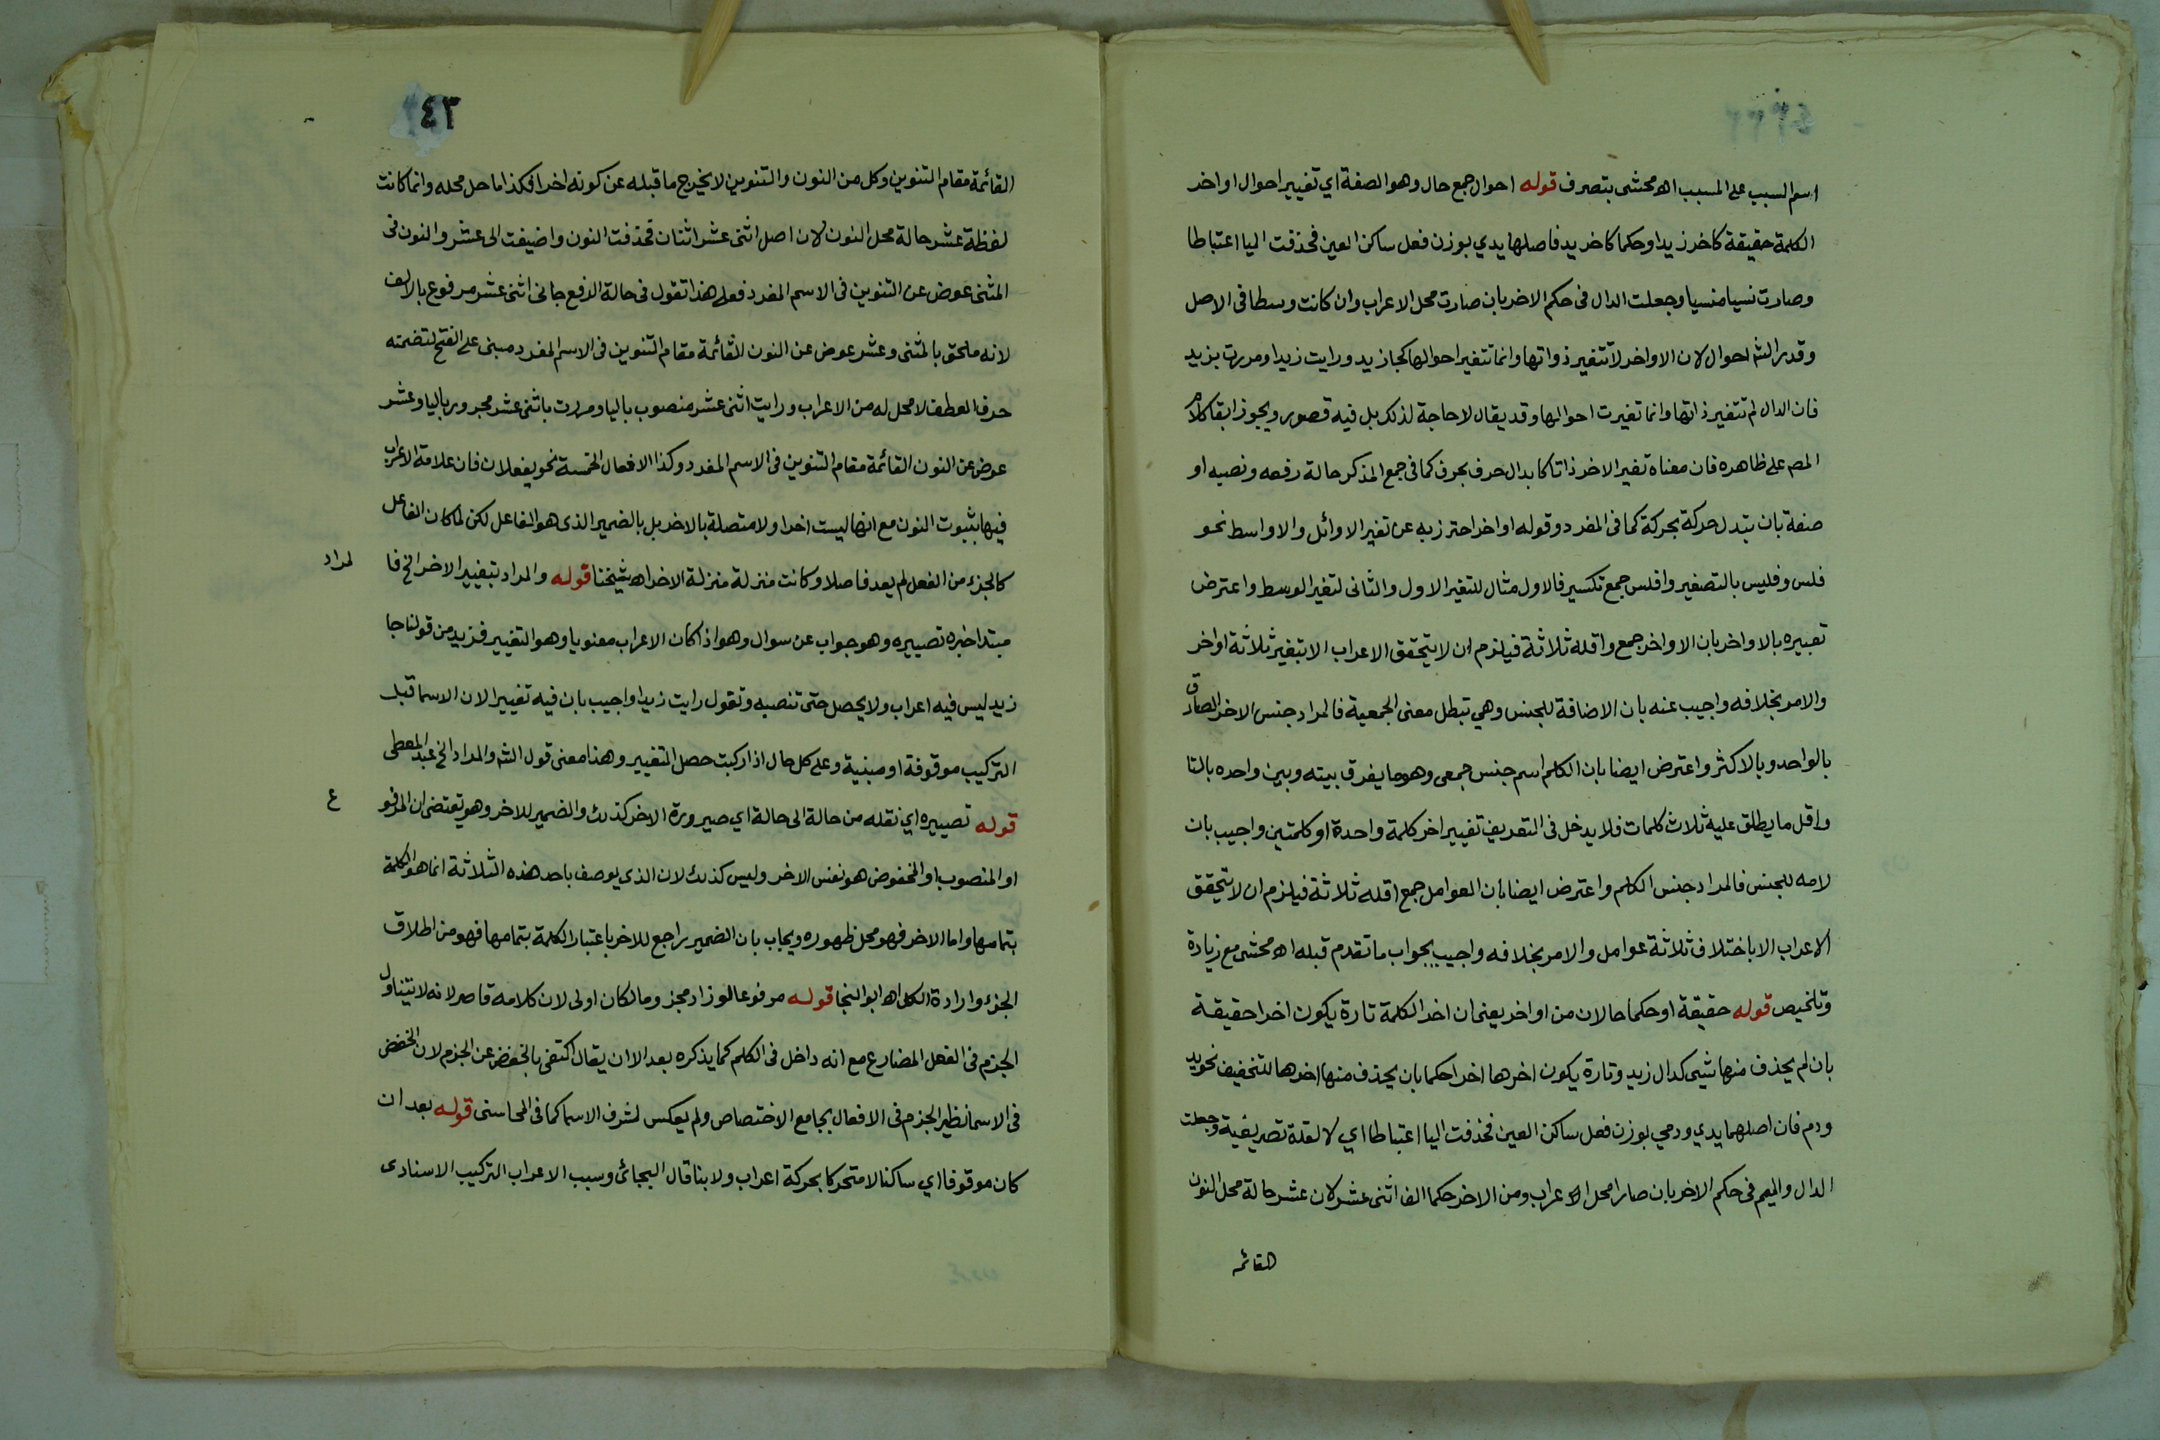 اسم السبب على المسبب اهـ محشى بتصرف قوله احوال جمع حال وهو الصفة اي تغيير احوال اواخر
الكلمة حقيقة كاخر زيد او حكما كاخر يد فاصلها يدي بوزن فعل ساكن العين فحذفت اليا اعتباطا
وصارت نسيا منسيا وجعلت الدال فى حكم الاخر بان صارت محل الاعراب وان كانت وسطا فى الاصل
وقدر الش احوال لان الاواخر لا تتغير ذواتها وانما تتغير احوالها كجا زيد ورايت زيدا ومررت بزيد
فان الدال لم تتغير ذاتها وانما تغيرت احوالها وقد يقال لا حاجة لذلك بل فيه قصور ويجوز ابقا كلام
المص على ظاهره فان معناه تغير الاخر ذاتا كابدال حرف بحرف كما فى جمع المذكر حالة رفعه ونصبه او
صفة بان يتبدل حركة بحركة كما فى المفرد وقوله اواخر احترز به عن تغير الاوائل والاواسط نحو
فلس وفليس بالتصغير وافلس جمع تكسير فالاول مثال للتغير الاول والثانى لتغير الوسط واعترض
تعبيره بالاواخر بان الاواخر جمع واقله ثلاثة فيلزم ان لا يتحقق الاعراب الا بتغير ثلاثة اواخر
والامر بخلافه واجيب عنه بان الاضافة للجنس وهي تبطل معنى الجمعية فالمراد جنس الاخر الصادق
بالواحد وبالاكثر واعترض ايضا بان الكلم اسم جنس جمعى وهو ما يفرق بينه وبين واحده بالتا
واقل ما يطلق عليه ثلاث كلمات فلا يدخل فى التعريف تغيير اخر كلمة واحدة او كلمتين واجيب بان
لامه للجنس فالمراد جنس الكلم واعترض ايضا بان العوامل جمع اقله ثلاثة فيلزم ان لا يتحقق
الاعراب الا باختلاف ثلاثة عوامل والامر بخلافه واجيب بجواب ما تقدم قبله اهـ محشى مع زيادة
وتلخيص قوله حقيقة او حكما حالان من اواخر يعنى ان اخر الكلمة تارة يكون اخرا حقيقة
بان لم يحذف منها شيى كدال زيد وتارة يكون اخرها اخرا حكما بان يحذف منها اخرها للتخفيف نحو يد
ودم فان اصلهما يدي ودمي بوزن فعل ساكن العين فحذفت اليا اعتباطا اي لا لعلة تصريفية وجعلت
الدال والميم فى حكم الاخر بان صارا محل الاعراب ومن الاخر حكما الف اثنى عشر لان عشر حالة محل النون
القائمه
٤٣
القائمة مقام التنوين وكل من النون والتنوين لا يخرج ما قبله عن كونه اخرا فكذا ما حل محله وانما كانت
لفظة عشر حالة محل النون لان اصل اثنى عشر اثنان فحذفت النون واضيفت الى عشر والنون فى
المثنى عوض عن التنوين فى الاسم المفرد فعلى هذا تقول فى حالة الرفع جانى اثنى عشر مرفوع بالالف
لانه ملحق بالمثنى وعشر عوض عن النون القائمة مقام التنوين فى الاسم المفرد مبنى على الفتح لتضمنه
حرف العطف لا محل له من الاعراب ورايت اثنى عشر منصوب باليا ومررت باثنى عشر مجرور باليا وعشر
عوض عن النون القائمة مقام التنوين فى الاسم المفرد وكذا الافعال الخمسة نحو يفعلان فان علامة الاعراب
فيها بثبوت النون مع انها ليست اخرا ولا متصلة بالاخر بل بالضمير الذى هو الفاعل لكن لما كان الفاعل
كالجزء من الفعل لم يعد فاصلا وكانت منزلة منزلة الاخر اهـ شيخنا قوله والمراد بتغيير الاخر الخ فا
لمراد
مبتدا خبره تصييره وهو جواب عن سوال وهو اذا كان الاعراب معنويا وهو التغيير فزيد من قولنا جا
زيد ليس فيه اعراب ولا يحصل حتى تنصبه وتقول رايت زيدا واجيب بان فيه تغييرا لان الاسما قبل
التركيب موقوفة او مبنية وعلى كل حال اذا ركبت حصل التغيير وهذا معنى قول الش والمراد الخ عبد المعطى
قوله تصييره اي نقله من حالة الى حالة اي صيرورة الاخر كذلك والضمير للاخر وهو يقتضى ان المرفو
ع
او المنصوب او المخفوض هو نفس الاخر وليس كذلك لان الذي يوصف باحد هذه الثلاثة انما هو الكلمة
بتمامها واما الاخر فهو محل ظهوره ويجاب بان الضمير راجع للاخر باعتبار الكلمة بتمامها فهو من اطلاق
الجزء وارادة الكل اهـ ابو النجا قوله مرفوعا لو زاد مجزوما لكان اولى لان كلامه قاصر لانه لا يتناول
الجزم فى الفعل المضارع مع انه داخل فى الكلم كما يذكره بعد الا ان يقال اكتفى بالخفض عن الجزم لان الخفض
فى الاسما نظير الجزم فى الافعال بجامع الاختصاص ولم يعكس لشرف الاسما كما فى المحاسنى قوله بعد ان
كان موقوفا اي ساكنا لا متحركا بحركة اعراب ولا بنا قال البجائى وسبب الاعراب التركيب الاسنادى